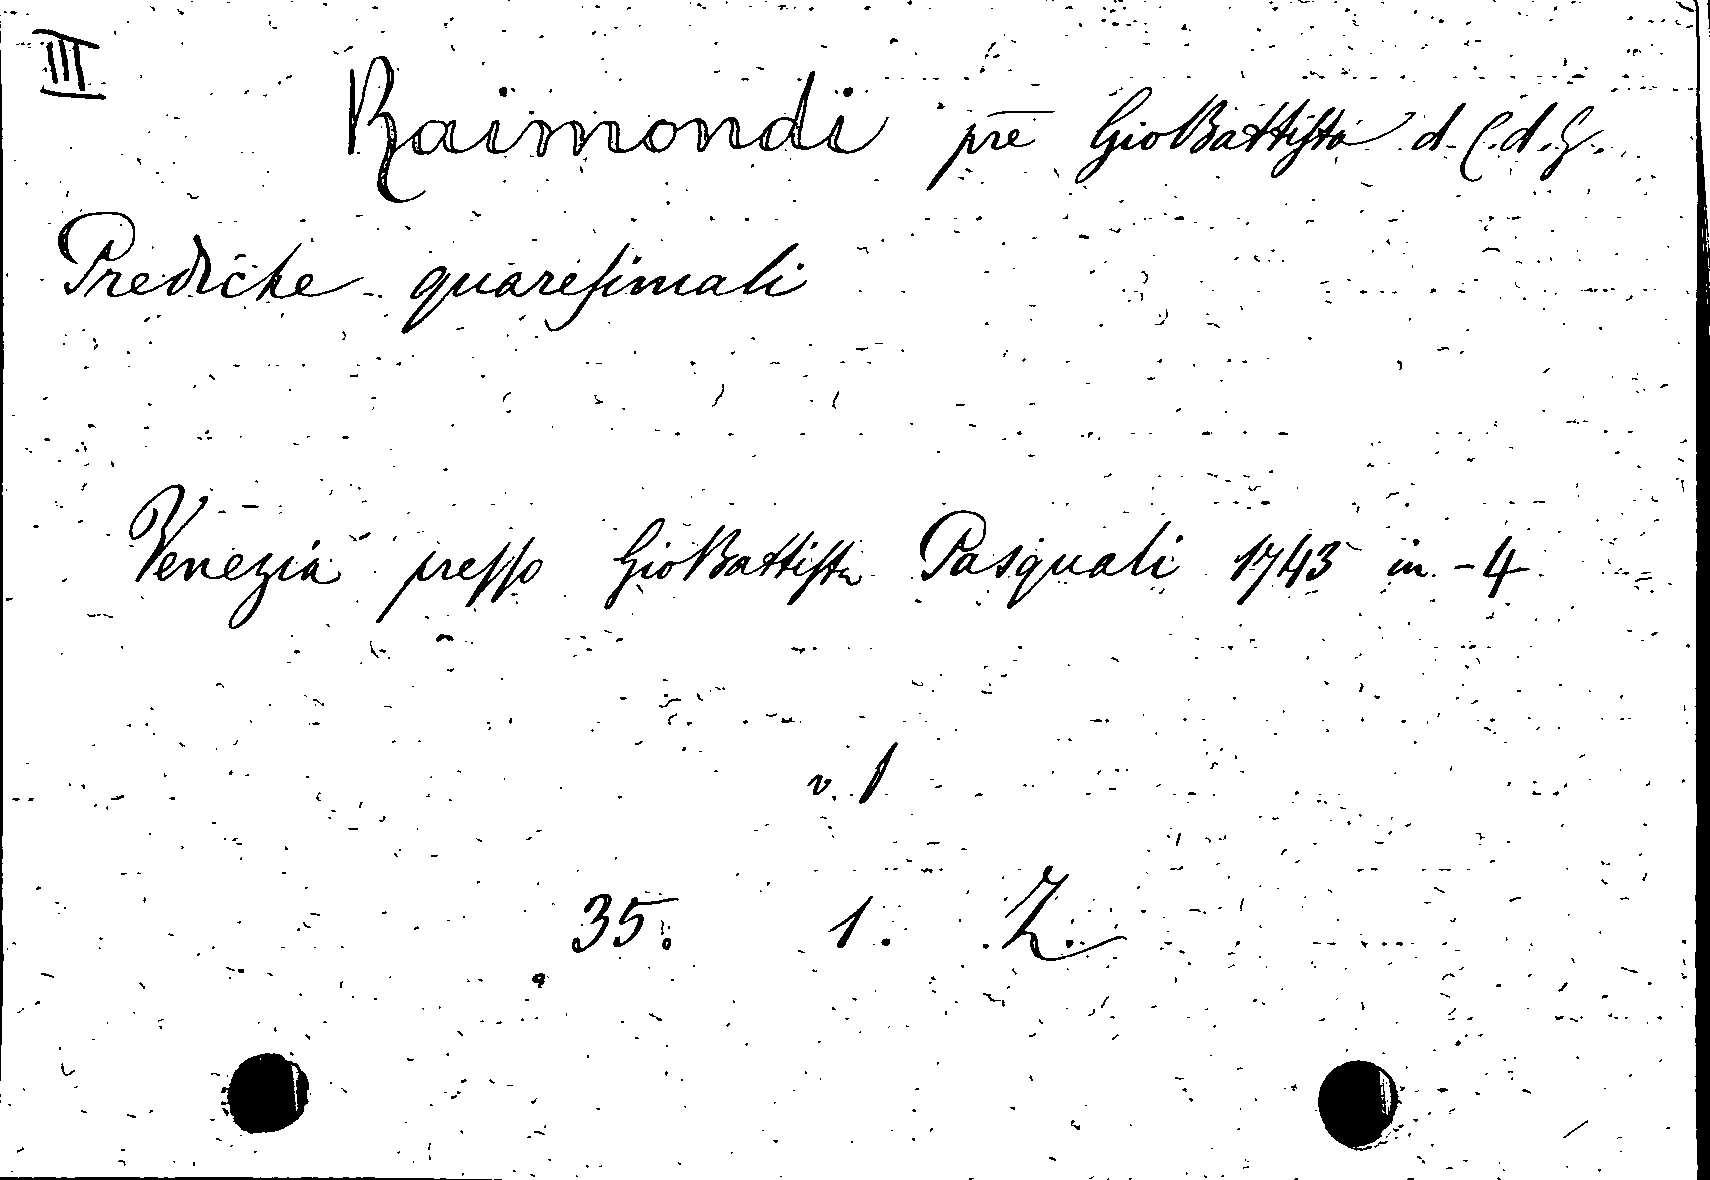 III
Raimondi pre GioBattista d. C. d. G.
Prediche quaresimali
Venezia presso GioBattista Pasquali 1743 in -4
v. 1
35. 1. Z.